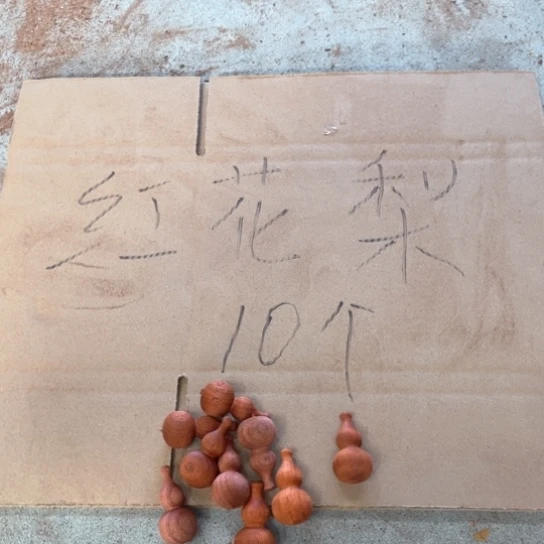 红花梨
10个